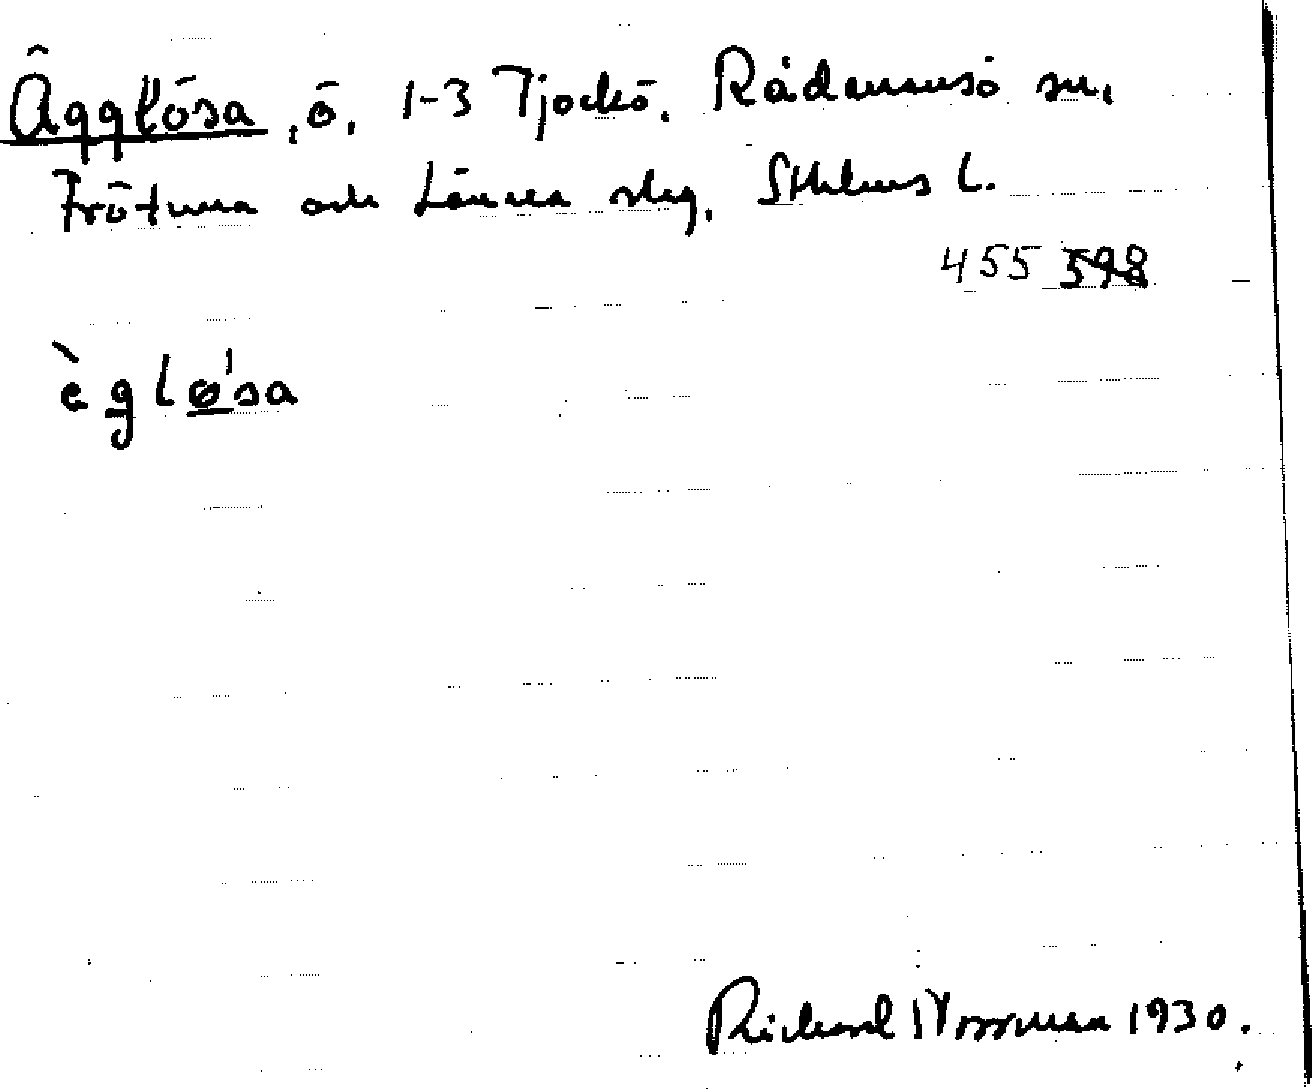 Ägglösa, ö, 1-3 Tjockö. Rådmansö sn,
Frötuna och Länna slg, Sthlms l.
455 598
ègløsa
Richard Norrman 1930.